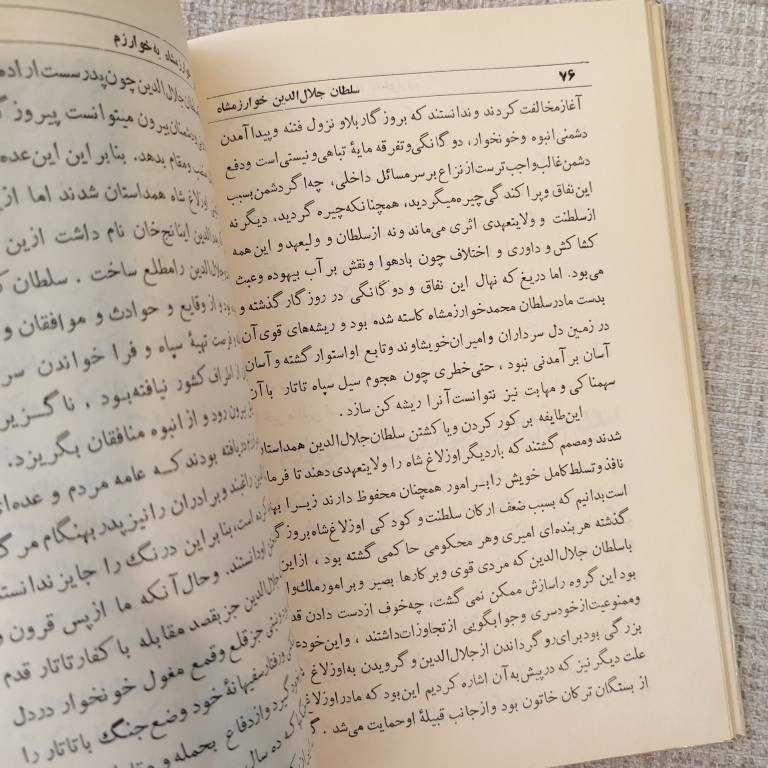 ۷۶ سلطان جلال‌الدین خوارزمشاه
آغاز مخالفت کردند و ندانستند که بروز گار بلا و نزول فتنه و پیدا آمدن
دشمنی انبوه و خونخوار، دو گانگی و تفرقه مایهٔ تباهی و نیستی است و دفع
دشمن غالب واجب ترست از نزاع بر سر مسائل داخلی، چه اگر دشمن بسبب
این نفاق و پرا کند گی چیره میگردید، همچنانکه چیره گردید، دیگر نه
از سلطنت و ولایتعهدی اثری می‌ماند و نه از سلطان و ولیعهد و این همه
کشا کش و داوری و اختلاف چون بادهوا و نقش بر آب بیهوده و عبث
می‌بود. اما دریغ که نهال این نفاق و دو گانگی در روز گار گذشته و
بدست مادر سلطان محمد خوارزمشاه کاسته شده بود و ریشه‌های قوی آن
در زمین دل سرداران و امیران خویشاوند و تابع او استوار گشته و آسان
آسان بر آمدنی نبود ، حتی خطری چون هجوم سیل سپاه تاتار با آن
سهمنا کی و مهابت نیز نتوانست آنرا ریشه کن سازد .
این طایفه بر کور کردن و یا کشتن سلطان جلال‌الدین همداستان
شدند و مصمم گشتند که بار دیگر اوزلاغ شاه را ولایتعهدی دهند تا فرما
نافذ و تسلط کامل خویش را بر امور همچنان محفوظ دارند زیرا
است بدانیم که بسبب ضعف ارکان سلطنت و کود کی اوزلاغ شاه بروز گ
گذشته هر بنده‌ای امیری و هر محکومی حا کمی گشته بود ، از این
با سلطان جلال‌الدین که مردی قوی و بر کارها بصیر و بر امور ملک و ا
بود این گروه را سازش ممکن نمی گشت، چه خوف از دست دادن قد
و ممنوعیت از خودسری و جوابگویی از تجاوزات داشتند ، و این خود
بزرگی بود برای رو گرداندن از جلال‌الدین و گرویدن به اوزلاغ
علت دیگر نیز که در پیش به آن اشاره کردیم این بود که مادر اوزلاغ
از بستگان ترکان خاتون بود و از جانب قبیلهٔ او حمایت می‌شد .
خوارزمشاه به خوارزم
جلال‌الدین چون پدر سست اراده
دشمنان بیرون میتوانست پیروز
و مقام بدهد. بنابر این این عده
اوزلاغ شاه همداستان شدند اما از
الدین اینانج‌خان نام داشت ازین
جلال‌الدین را مطلع ساخت . سلطان ک
و از وقایع و حوادث و موافقان و
فرصت تهیهٔ سپاه و فرا خواندن سر
از اطراف کشور نیافته بود ، نا گزیر
بیرون رود و از انبوه منافقان بگریزد.
دریافته بودند که عامه مردم و عده‌ای
راغبند و برادران را نیز پدر بهنگام مر گ
است، بنابر این درنگ را جایز ندانستند
دانستند. وحال آنکه ما از پس قرون و
جلال‌الدین جز بقصد مقابله با کفار تاتار قدم
جز قلع و قمع مغول خونخوار در دل
رفتار سفیهانهٔ خود وضع جنگ با تاتار را
گیرد و از دفاع بحمله و
که ده سال